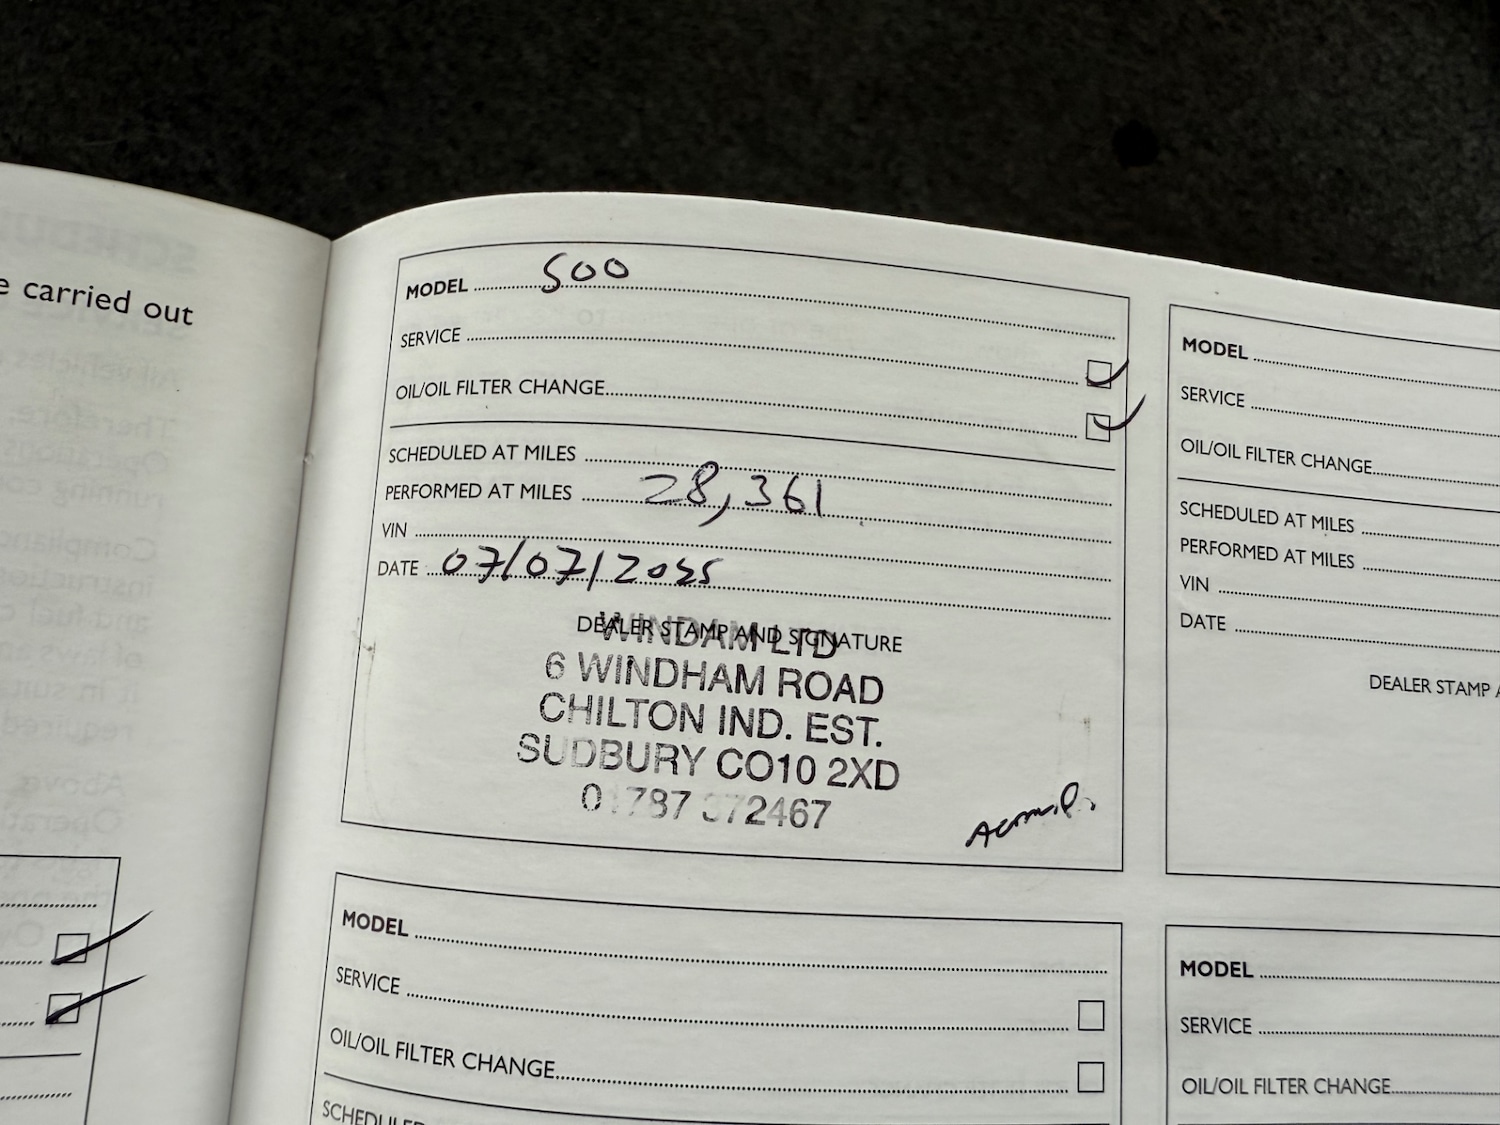 e carried out
MODEL 500
SERVICE
OIL/OIL FILTER CHANGE
SCHEDULED AT MILES
PERFORMED AT MILES 28,361
VIN
DATE 07/07/2025
DEALER STAMP AND SIGNATURE
WINDAM LTD
6 WINDHAM ROAD
CHILTON IND. EST.
SUDBURY CO10 2XD
01787 372467
MODEL
SERVICE
OIL/OIL FILTER CHANGE
SCHEDULED AT MILES
PERFORMED AT MILES
VIN
DATE
DEALER STAMP
MODEL
SERVICE
OIL/OIL FILTER CHANGE
SCHEDULED
MODEL
SERVICE
OIL/OIL FILTER CHANGE